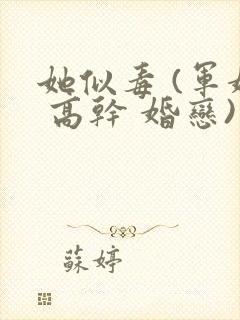 她似毒(軍婚
高幹 婚戀)
蘇婷